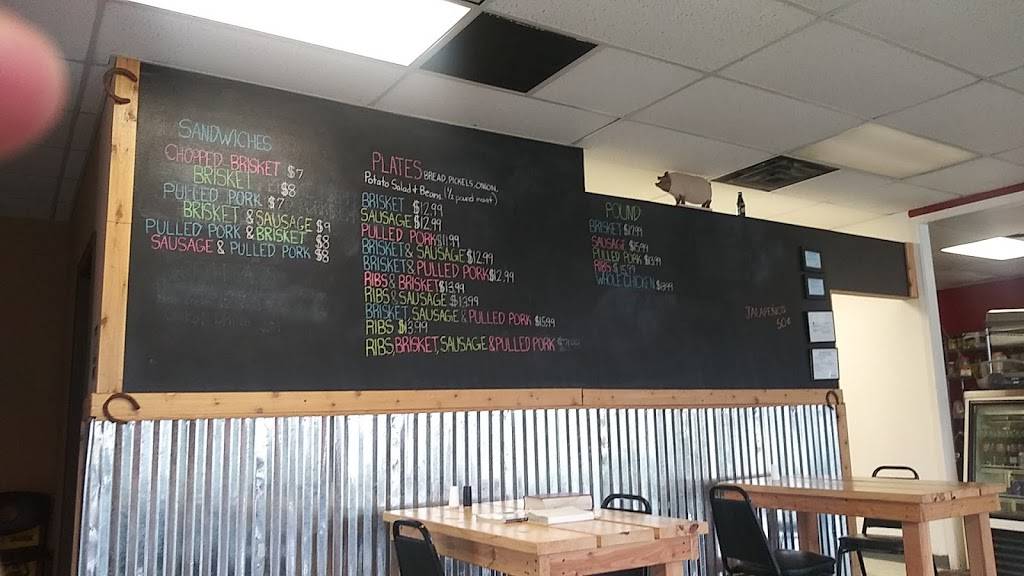 SANDWICHES
CHOPPED BRISKET $7
BRISKET $8
PULLED PORK $7
BRISKET & SAUSAGE $9
PULLED PORK & BRISKET $8
SAUSAGE & PULLED PORK $8
PLATES BREAD, PICKELS, ONION,
Potato Salad + Beans (1/2 pound meat)
BRISKET $12.99
SAUSAGE $12.99
PULLED PORK $11.99
BRISKET & SAUSAGE $12.99
BRISKET & PULLED PORK $12.99
RIBS & BRISKET $13.99
RIBS & SAUSAGE $13.99
BRISKET, SAUSAGE & PULLED PORK $15.99
RIBS $13.99
RIBS, BRISKET, SAUSAGE & PULLED PORK
POUND
BRISKET $17.99
SAUSAGE $15.99
PULLED PORK $13.99
RIBS $15.99
WHOLE CHICKEN
JALAPEÑOS
50¢